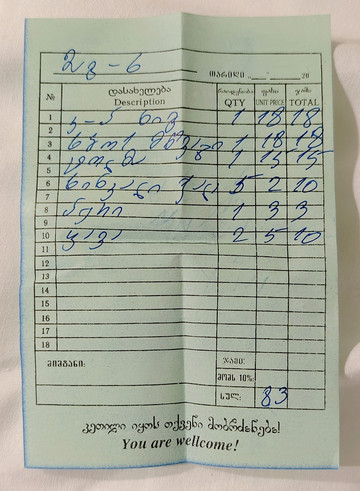 მაგ - 6 თარიღი __.__ 20
№ დასახელება რაოდენობა ფასი ჯამი
Description QTY UNIT PRICE TOTAL
1 1 18 18
2
3 1 18 18
4 1 15 15
5
6 ხინკალი ქალ 5 2 10
7
8 პური 1 3 3
9
10 ყავა 2 5 10
11
12
13
14
15
16
17
18
მიმტანი: ჯამი:
მომს 10%:
სულ: 83
კეთილი იყოს თქვენი მობრძანება!
You are wellcome!